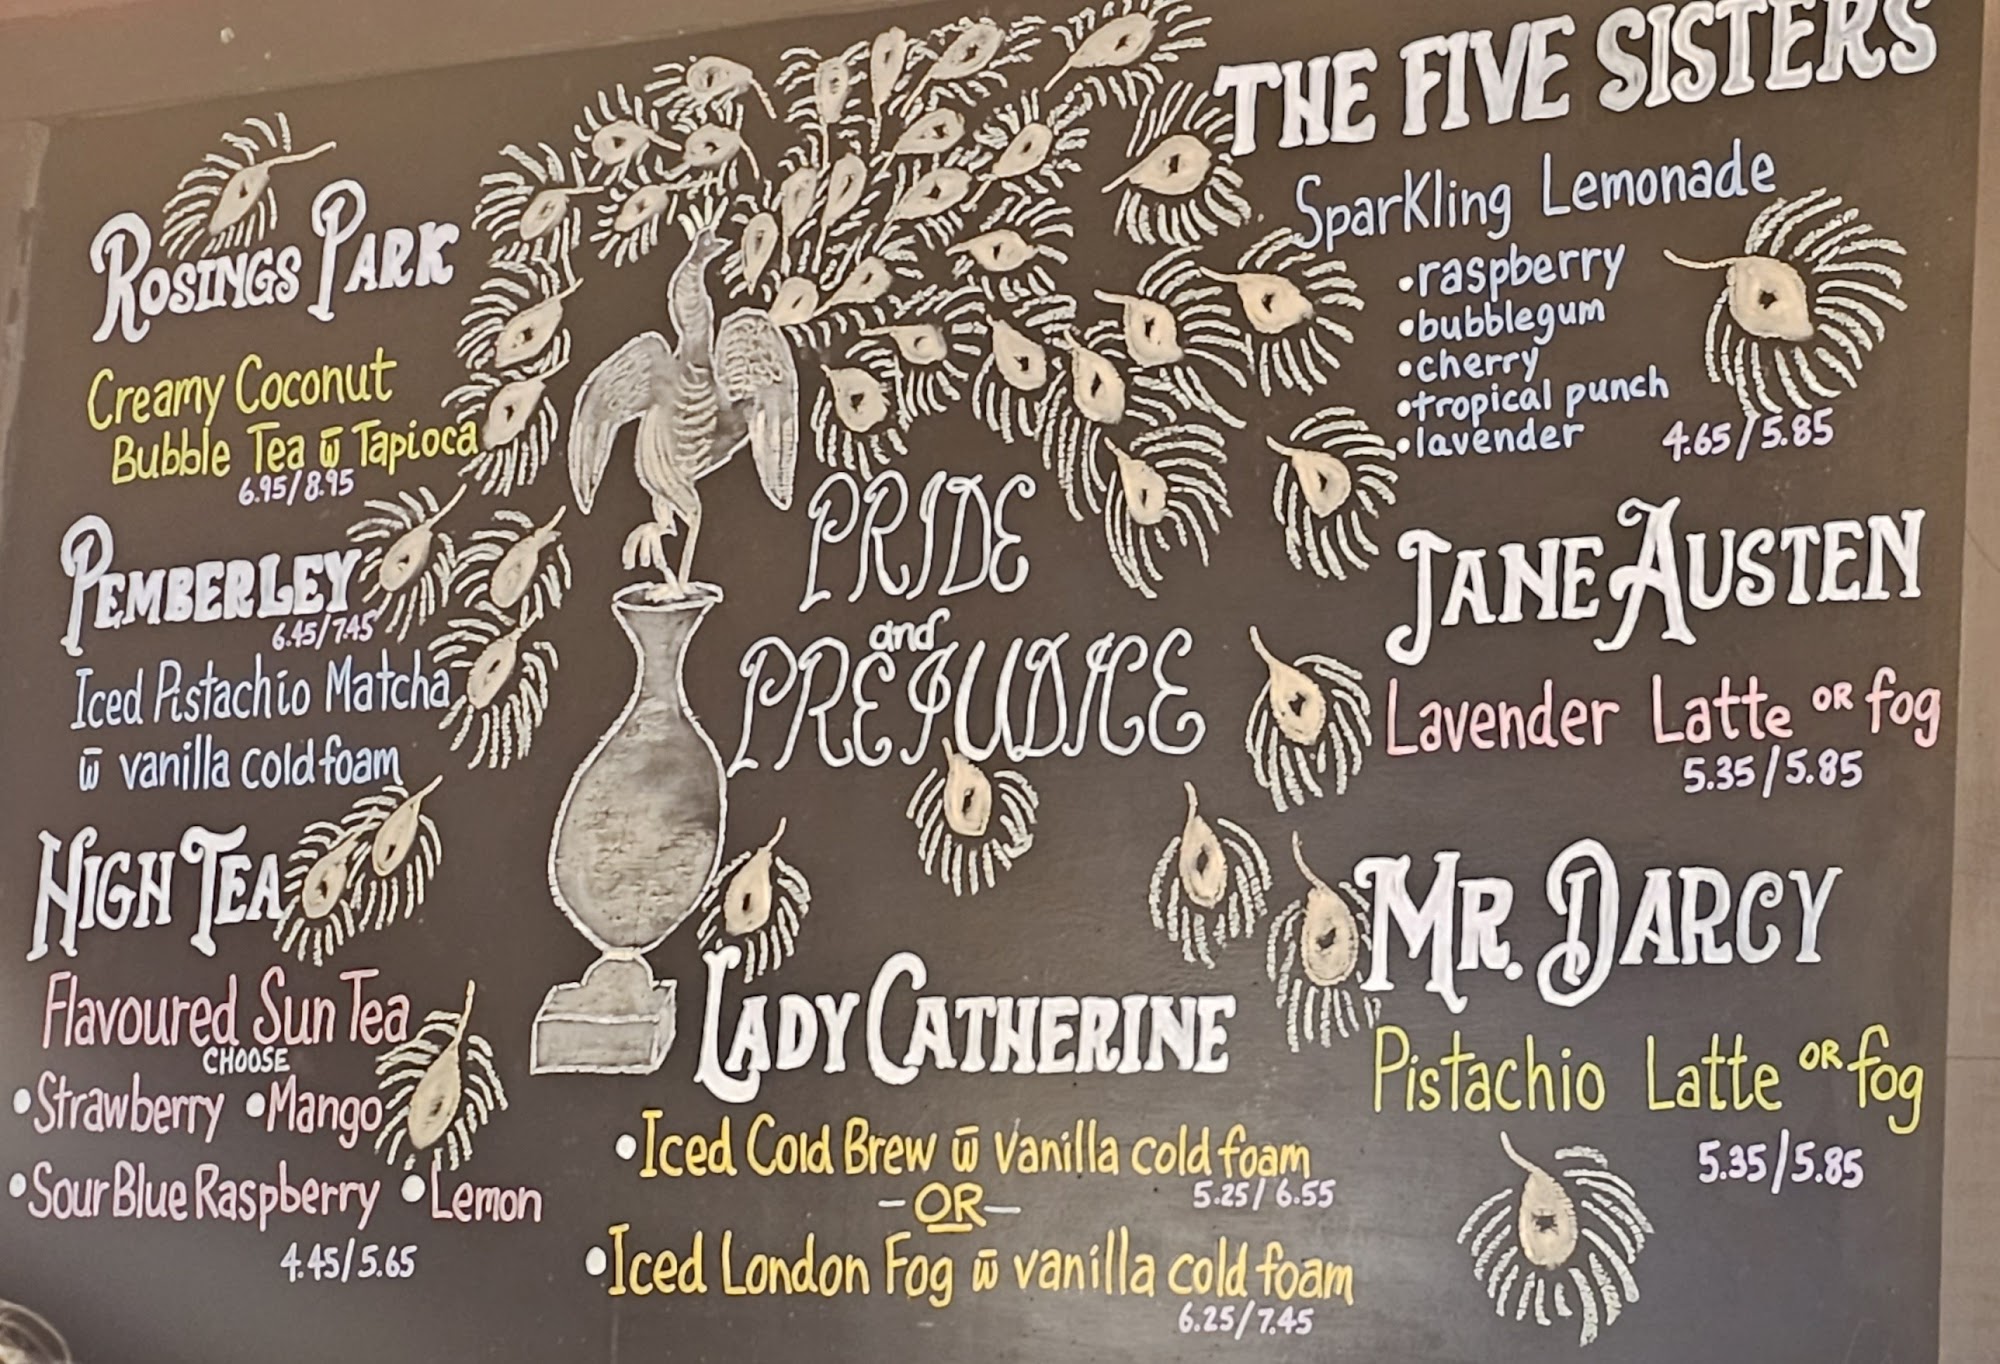 ROSINGS PARK
Creamy Coconut
Bubble Tea w̄ Tapioca
6.95/8.95
PEMBERLEY
6.45/7.45
Iced Pistachio Matcha
w̄ vanilla cold foam
HIGH TEA
Flavoured Sun Tea
CHOOSE
•Strawberry •Mango
•Sour Blue Raspberry •Lemon
4.45/5.65
PRIDE
and
PREJUDICE
LADY CATHERINE
•Iced Cold Brew w̄ vanilla cold foam
5.25/6.55
-OR-
•Iced London Fog w̄ vanilla cold foam
6.25/7.45
THE FIVE SISTERS
Sparkling Lemonade
•raspberry
•bubblegum
•cherry
•tropical punch
•lavender
4.65/5.85
JANE AUSTEN
Lavender Latte OR fog
5.35/5.85
MR. DARCY
Pistachio Latte OR fog
5.35/5.85